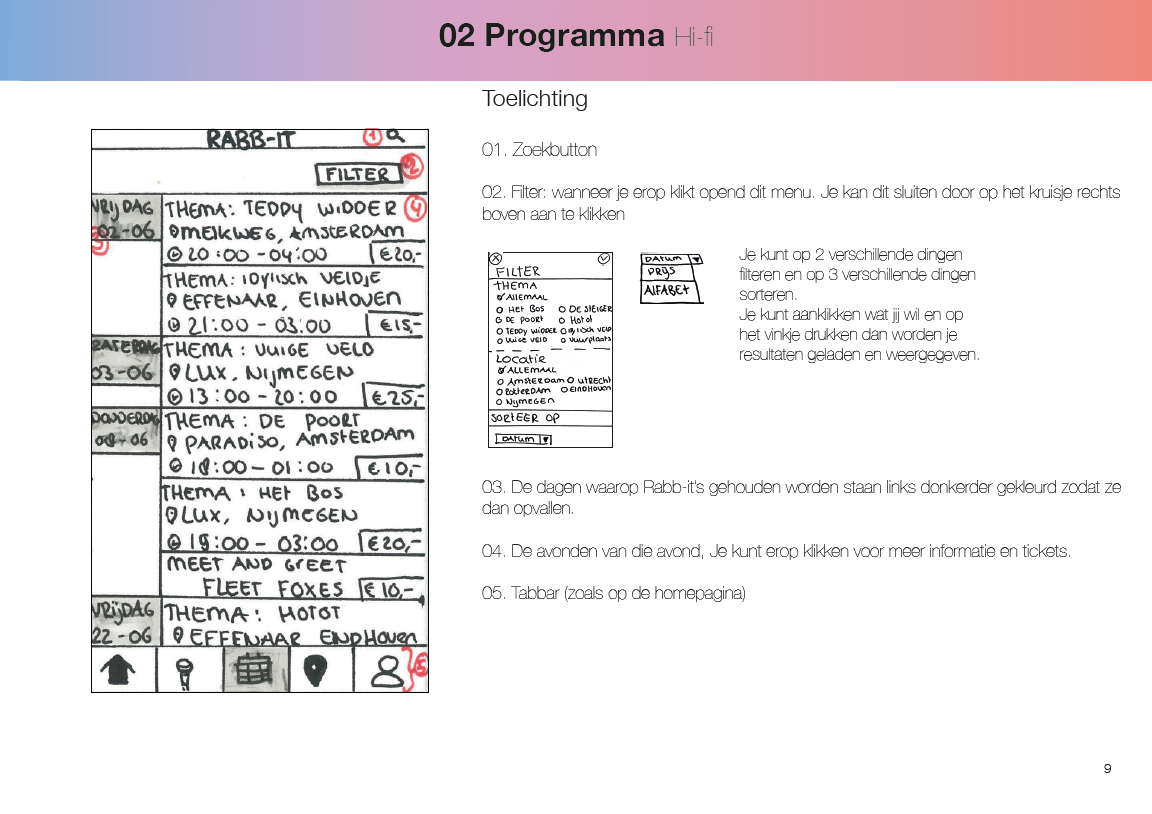 02 Programma Hi-fi
RABB-IT 1
FILTER 2
VRIJDAG
02-06
3
THEMA: TEDDY WIDDER 4
MELKWEG, AMSTERDAM
20:00 - 04:00 €20,-
THEMA: IDYLISCH VELDJE
EFFENAAR, EINHOVEN
21:00 - 03:00 €15,-
ZATERDAG
03-06
THEMA: VUIGE VELD
LUX, NIJMEGEN
13:00 - 20:00 €25,-
DONDERDAG
08-06
THEMA: DE POORT
PARADISO, AMSTERDAM
18:00 - 01:00 €10,-
THEMA: HET BOS
LUX, NIJMEGEN
19:00 - 03:00 €20,-
MEET AND GREET
FLEET FOXES €10,-
VRIJDAG
22-06
THEMA: HOTOT
EFFENAAR EINDHOVEN
5
Toelichting
01. Zoekbutton
02. Filter: wanneer je erop klikt opend dit menu. Je kan dit sluiten door op het kruisje rechts
boven aan te klikken
FILTER
THEMA
ALLEMAAL
HET BOS DE STEIGER
DE POORT HOTOT
TEDDY WIDDER IDYLISCH VELD
VUIGE VELD VUURPLAATS
LOCATIE
ALLEMAAL
AMSTERDAM UTRECHT
ROTTERDAM EINDHOVEN
NIJMEGEN
SORTEER OP
DATUM
DATUM
PRIJS
ALFABET
Je kunt op 2 verschillende dingen
filteren en op 3 verschillende dingen
sorteren.
Je kunt aanklikken wat jij wil en op
het vinkje drukken dan worden je
resultaten geladen en weergegeven.
03. De dagen waarop Rabb-it's gehouden worden staan links donkerder gekleurd zodat ze
dan opvallen.
04. De avonden van die avond, Je kunt erop klikken voor meer informatie en tickets.
05. Tabbar (zoals op de homepagina)
9